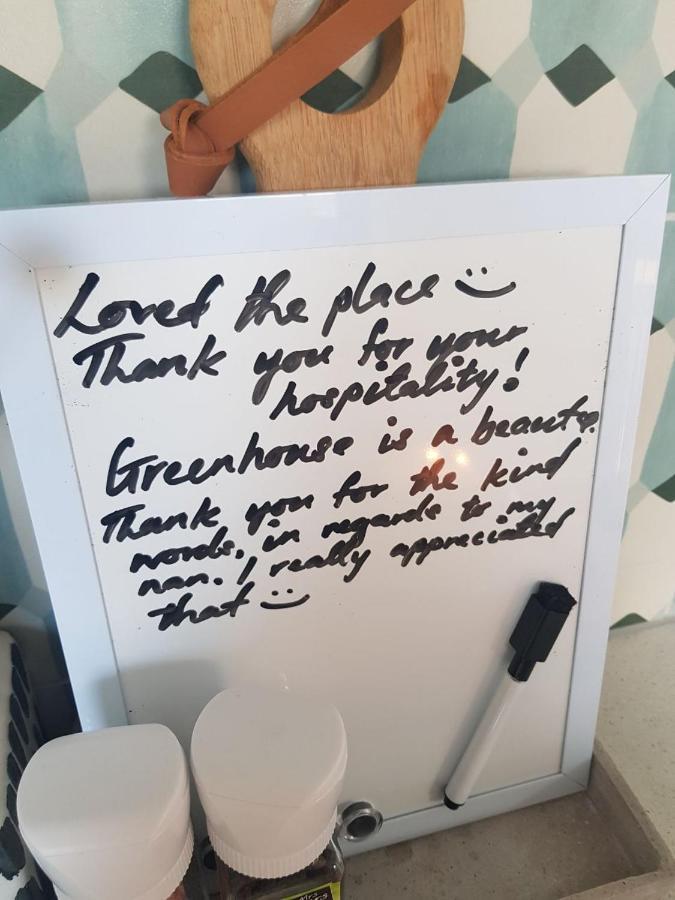 Loved the place :)
Thank you for your
hospitality!
Greenhouse is a beauty.
Thank you for the kind
words, in regards to my
nan. I really appreciated
that :)